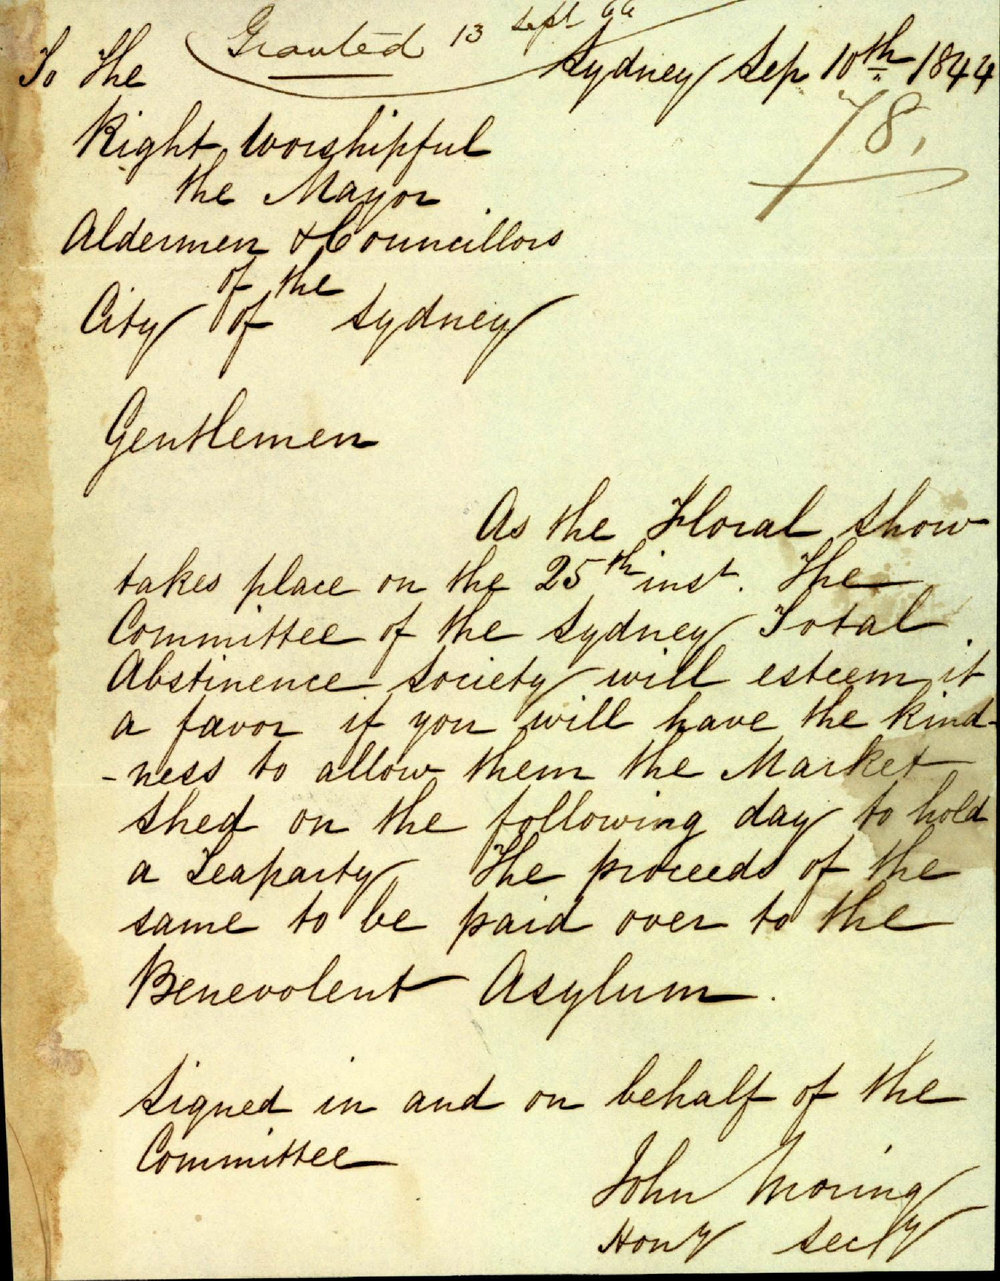 Granted 13 Sept 44
To the Sydney Sep 10th 1844
78.
Right Worshipful
the Mayor
Aldermen & Councillors
of the
City of Sydney
Gentlemen
As the Floral Show
takes place on the 25th inst. The
Committee of the Sydney Total
Abstinence Society will esteem it
a favor if you will have the kind-
-ness to allow them the Market
Shed on the following day to hold
a Teaparty The proceeds of the
same to be paid over to the
Benevolent Asylum.
Signed in and on behalf of the
Committee
John Moring
Hony Secty